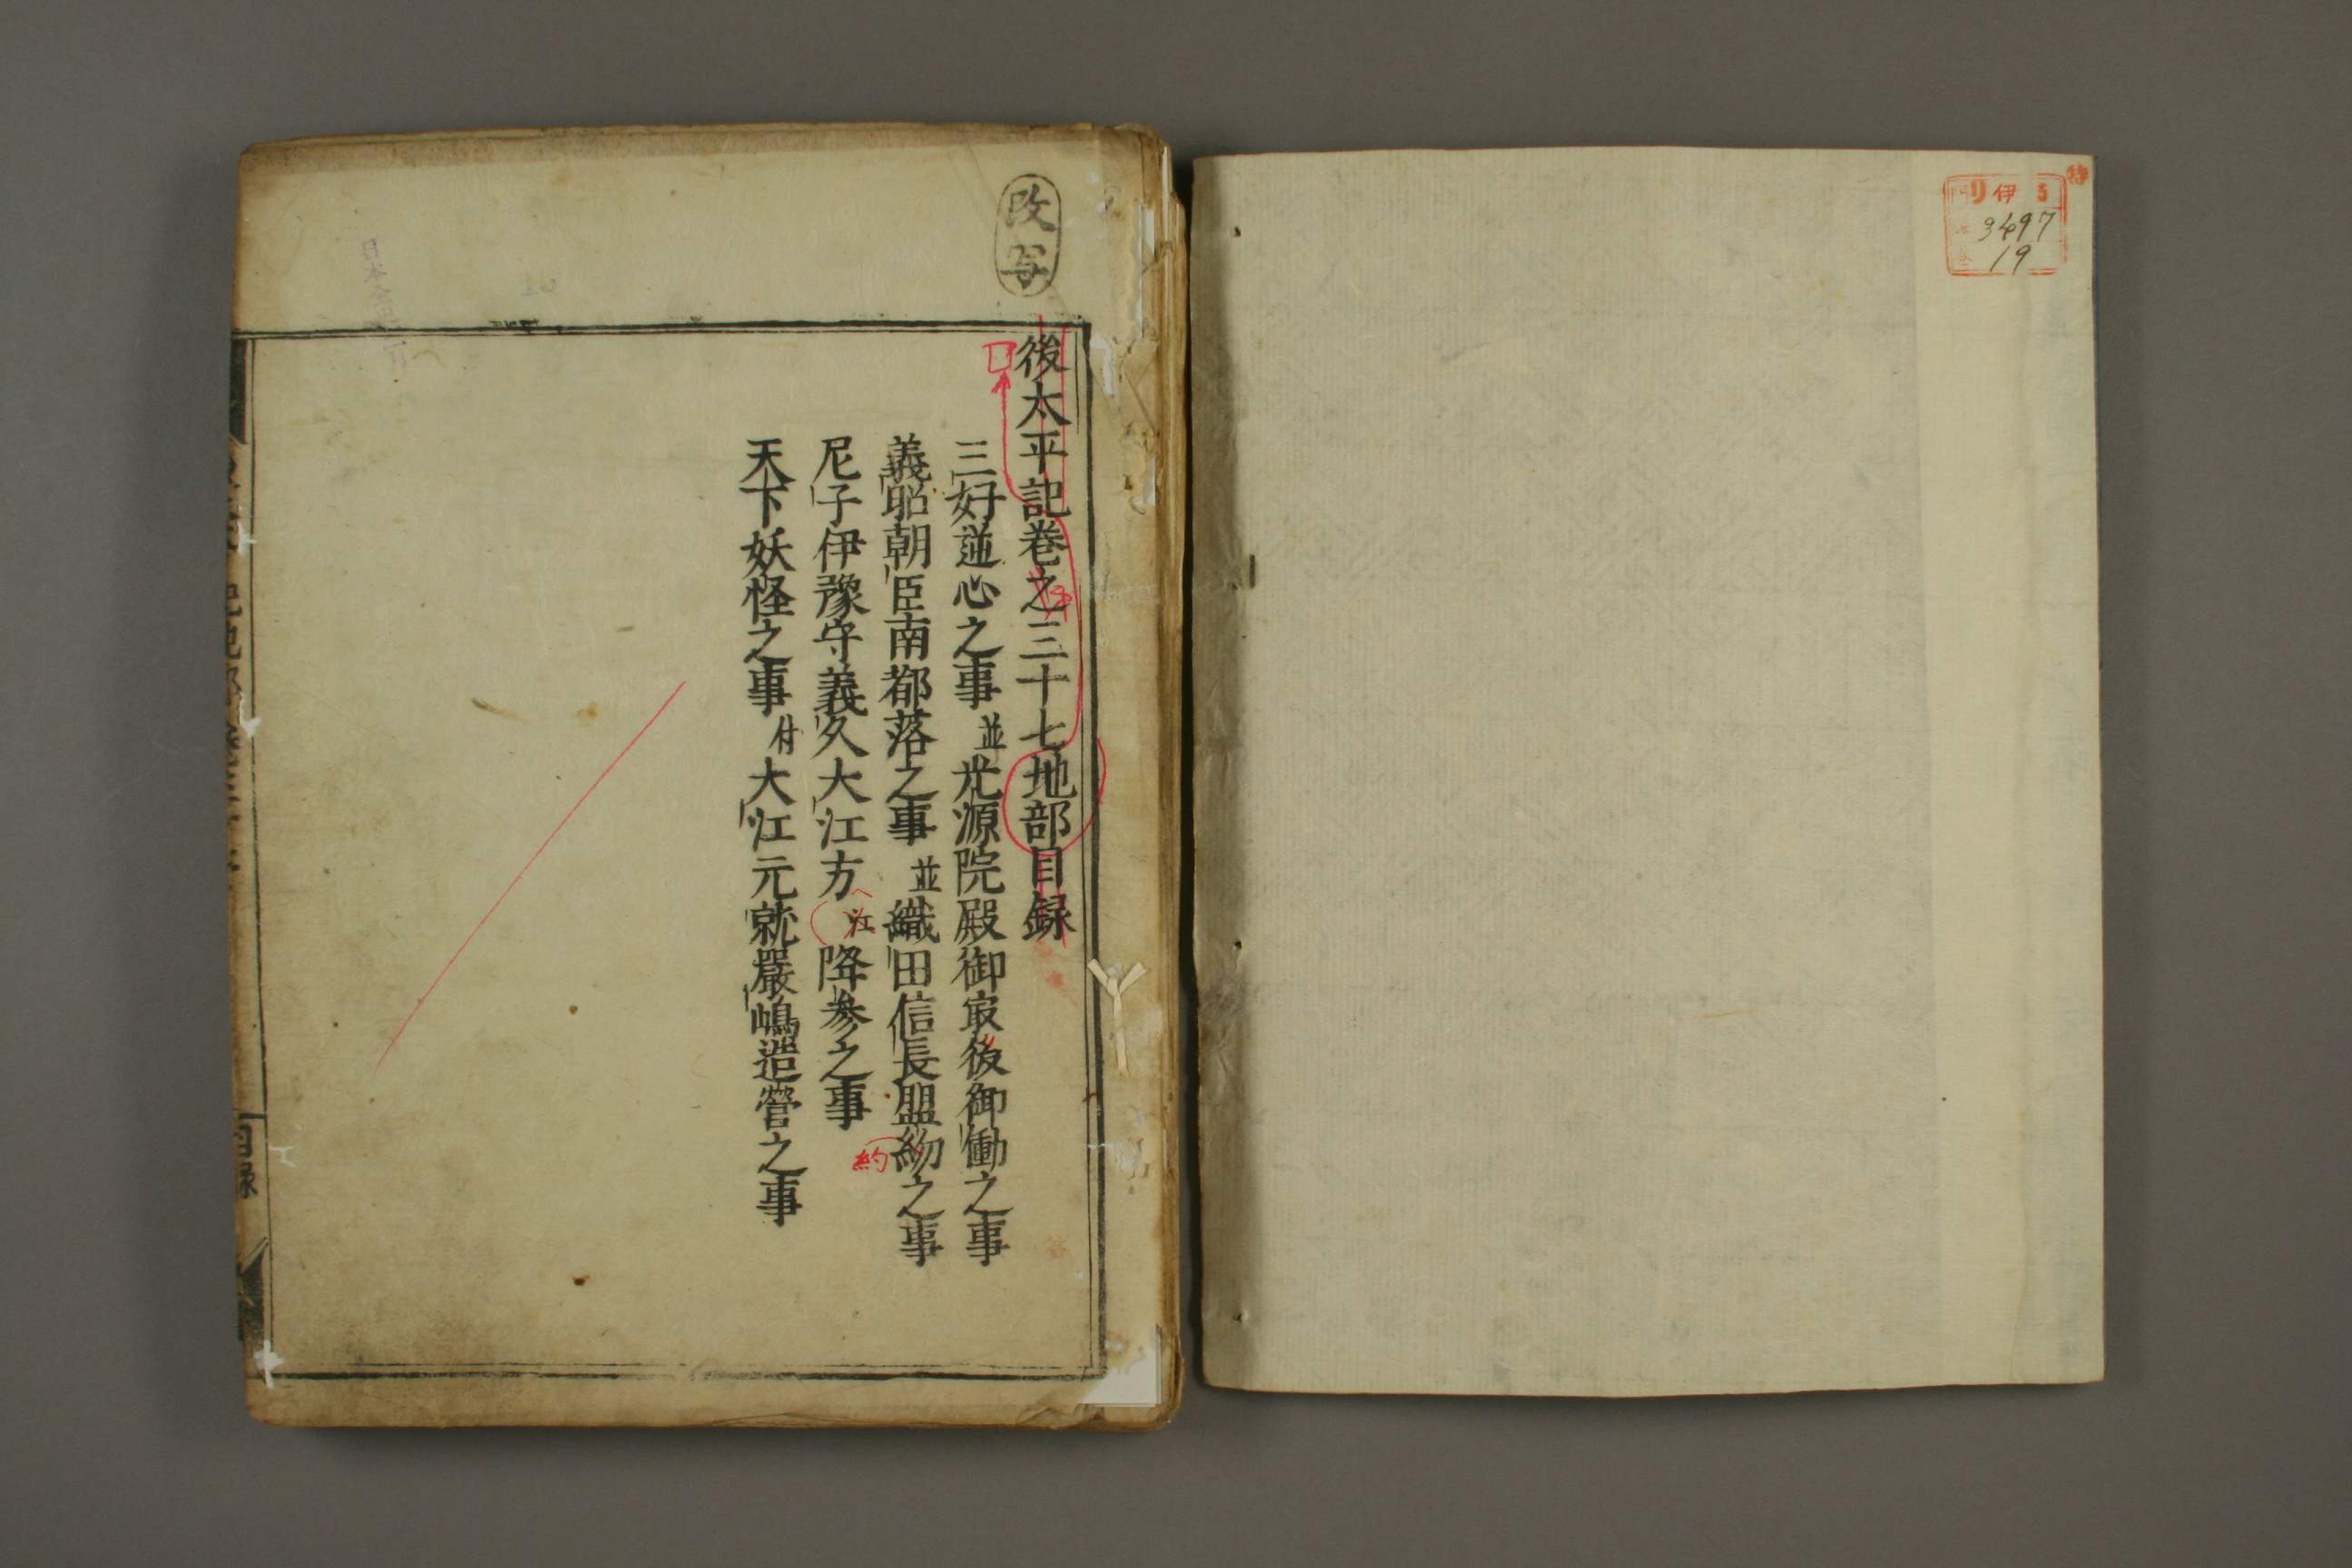 特
リ 伊 5
3497
19
改写
後太平記巻之三十七地部目録
三好逆心之事 並 光源院殿御㝡後御働之事
義昭朝臣南都落之事 並 織田信長盟約之事
約
尼子伊豫守義久大江方江降参之事
天下妖怪之事 付 大江元就嚴嶋造營之事
目録